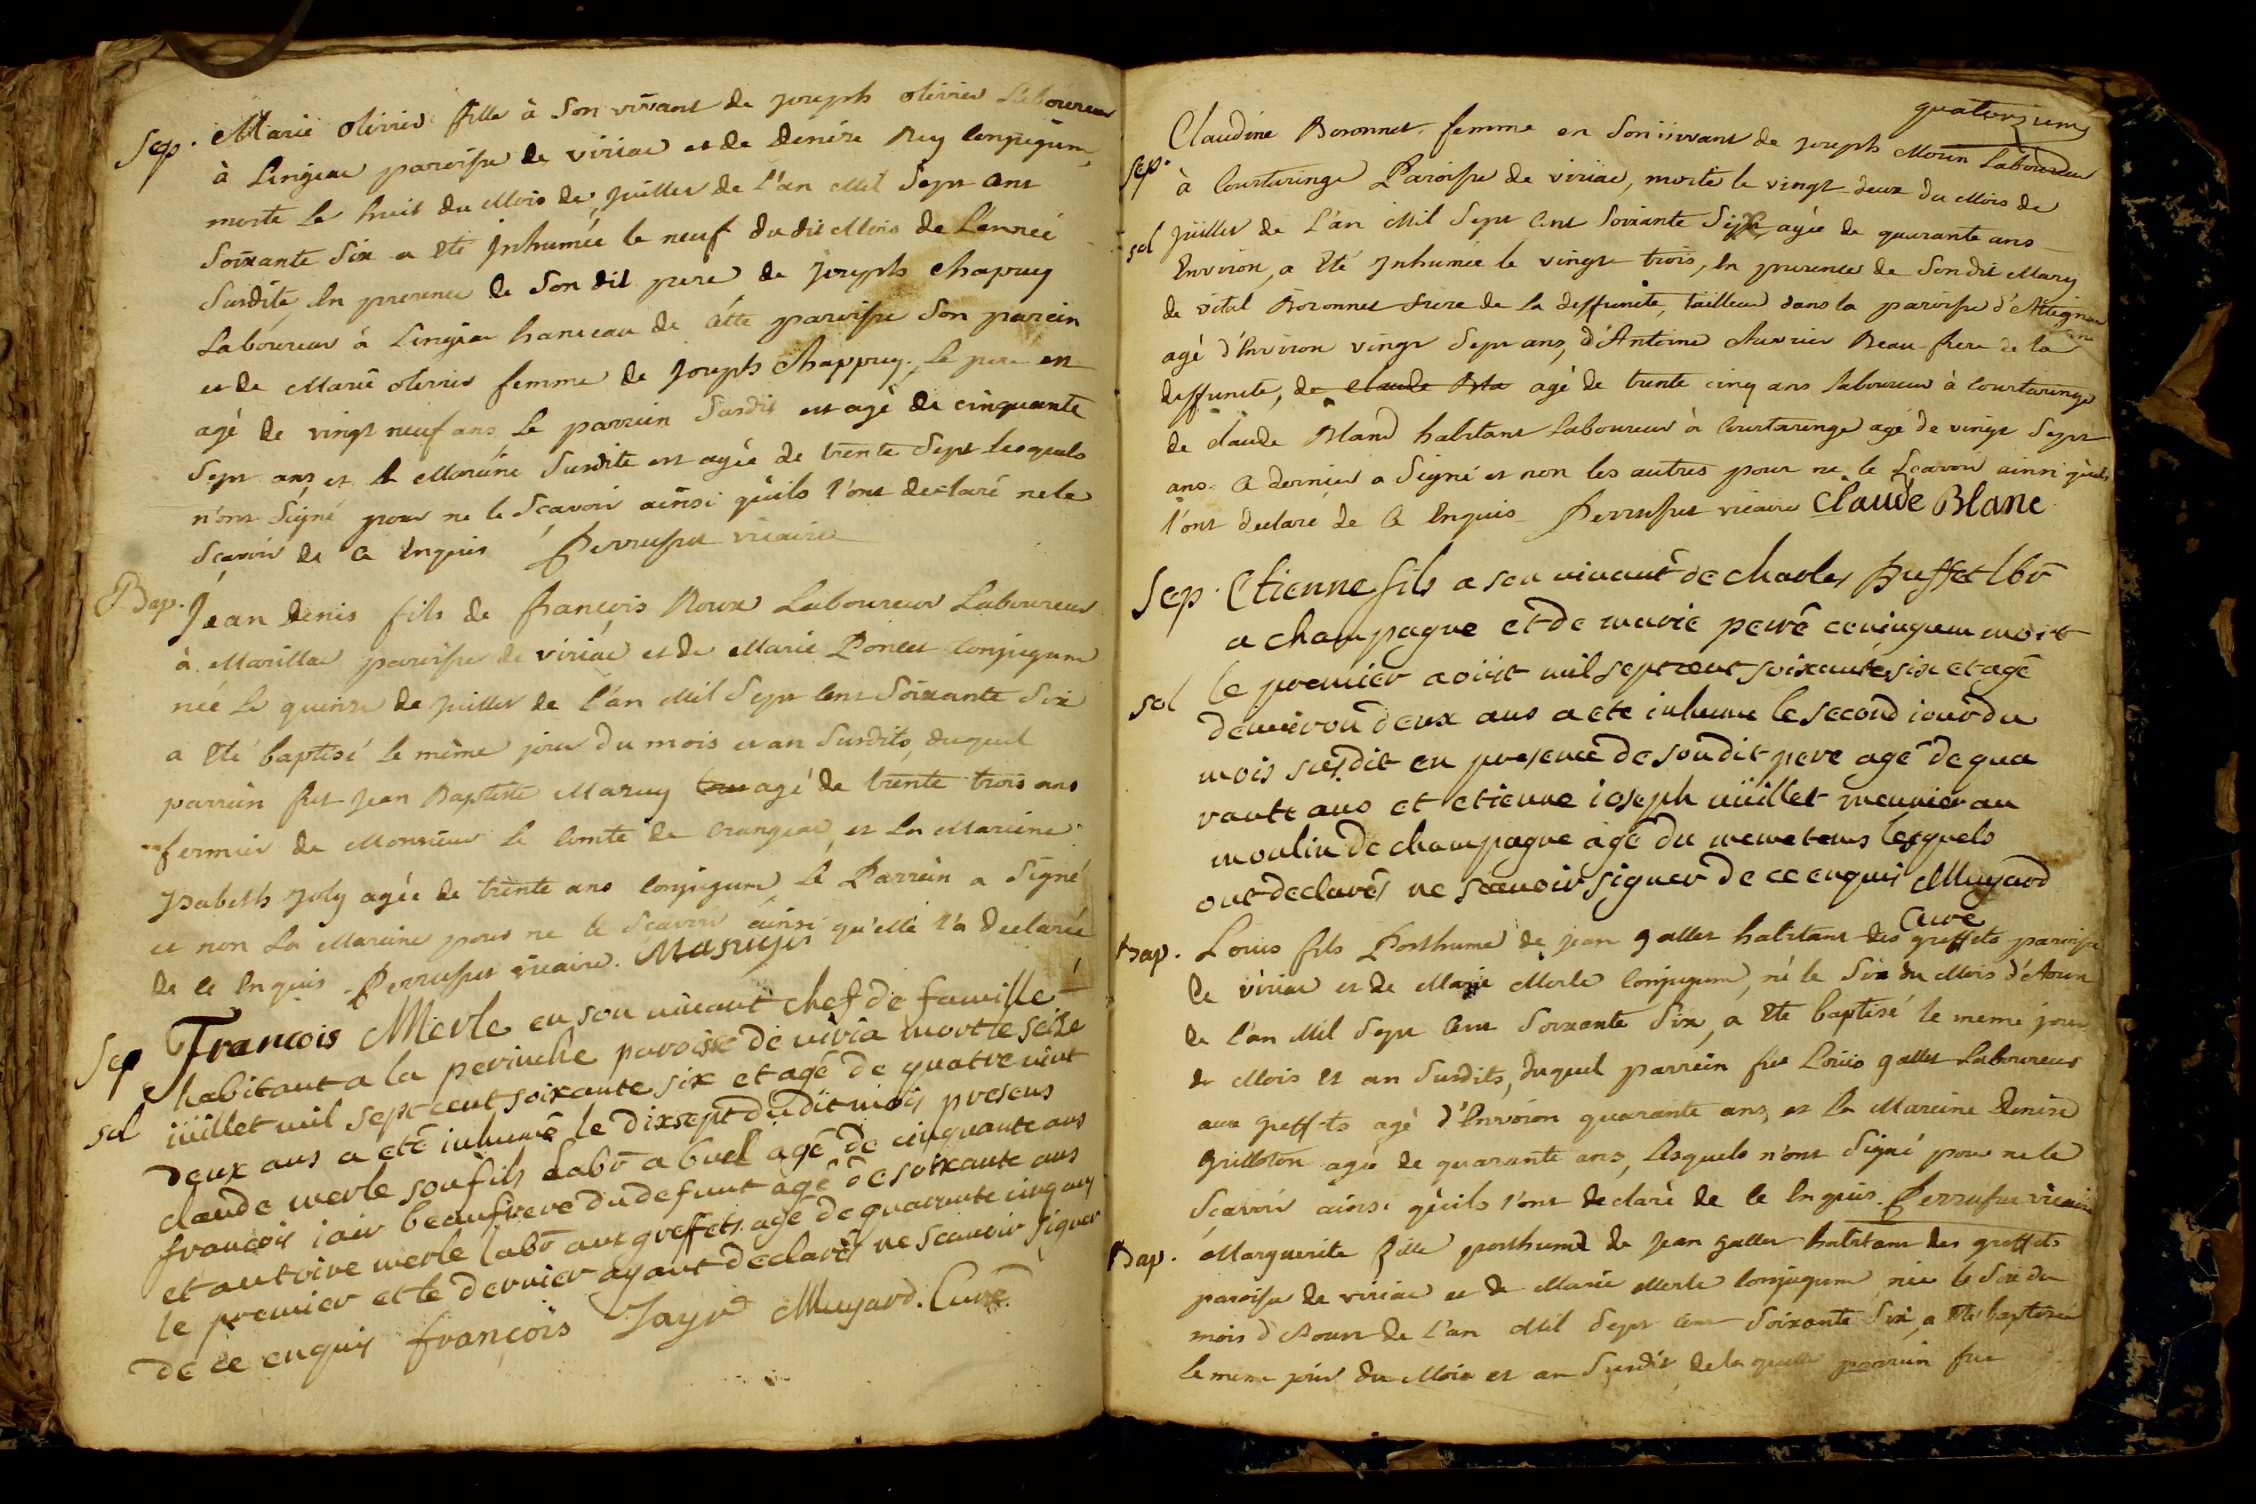 Sep. Marie olivier fille à son vivant de joseph olivier Laboureur
à Lingiac paroisse de viriac et de Denise Rey conjugum,
morte le huit du Mois de juillet de l'an Mil Sept Cent
Soixante Six a Eté Jnhumée le neuf du dit Mois de L'année
Susdite, en presence de Son dit pere de joseph chapuy
Laboureur à Lingiac hameau de cétte paroisse Son parein
et de Marie olivier femme de joseph chappuy. Le pere est
agé de vingt neuf ans, Le parrein Susdit est agé de cinquante
Sept ans, et la Mareine Susdite est agée de trente Sept lesquels
n'ont Signé pour ne le Scavoir ainsi qu'ils l'ont declaré ne le
Scavoir de ce Enquis Perruset vicaire
Bap. Jean Denis fils de françois Roux Laboureur Laboureur
à Marillac paroisse de viriac et de Marie Poncet conjugum
né le quinze de juillet de l'an Mil Sept Cent Soixante Six
a Eté baptisé le même jour du mois et an Susdits, duquel
parrein fut Jean Baptiste Maruy agé de trente trois ans
fermier de Monsieur le Comte de Crangeac, et La Mareine
Jsabeth Joly agée de trente ans Conjugum, le Parrein a Signé
et non La Mareine pour ne le Scavoir ainsi qu'elle l'a declarée
de ce Enquis. Perruset vicaire. Maruy
Sep François Merle en son vivant chef de famille
habitant a la peruche paroisse de viria mort le seize
sol iuillet mil sept cent soixante six et agé de quatre vint
deux ans a eté inhumé le dixsept dudit mois presens
claude merle son fils Labo a buel agé de cinquante ans
françois iair beaufrere du defunt agé de soixante ans
et antoine merle labo aux greffets agé de quarante cinq ans
le premier et le dernier ayant declarés ne scavoir signer
de ce enquis françois Jayr Muyard. Curé.
quatorzieme
Sep. Claudine Boronnet, femme en Son vivant de joseph Morin Laboureur
à Courtaringe Paroisse de viriac, morte le vingt deux du Mois de
sol juillet de L'an Mil Sept Cent Soixante Six, agée de quarante ans
Environ, a Eté Jnhumée le vingt trois, en presence de Son dit Mary
de vital Boronnet frere de la deffunte, tailleur dans la paroisse d'Attignac
agé d'Environ vingt Sept ans, d'Antoine chevrier Beau frere de la
deffunte, de claude Bla agé de trente cinq ans laboureur à Courtaringe
de claude Bland habitant Laboureur à Courtaringe agé de vingt Sept
ans. Ce dernier a Signé et non les autres pour ne le Scavoir ainsi qu'ils
l'ont declaré de ce Enquis Perruset vicaire Claude Blanc
Sep. Etienne fils a son vivant de charles Buffet lbo
a champagne et de marie peiré coniugum mort
sol le premier aoüst mil sept cent soixante six et agé
denviron deux ans a ete inhume le second iour du
mois susdit en presence de son dit pere agé de qua
rante ans et etienne ioseph nüillet meunier au
moulin de champagne agé du meme tems lesquels
ont declarés ne scavoir signer de ce enquis Muyard
Curé
Bap. Louis fils Posthume de jean gallet habitant des greffets paroisse
de viriac et de Marie Merle Conjugum, né le Six du Mois d'Aoust
de l'an Mil Sept Cent Soixante Six, a Eté baptisé le meme jour
du Mois et an Susdits, duquel parrein fut Louis gallet Laboureur
aux greffets agé d'Environ quarante ans, et la Mareine Denise
grilleton agée de quarante ans, Lesquels n'ont Signé pour ne le
Scavoir ainsi qu'ils l'ont declaré de ce Enquis. Perruset vicaire
Bap. Marguerite fille posthume de jean gallet habitant des greffets
paroisse de viriac et de Marie Merle Conjugum, née le Six du
mois d'Aoust de l'an Mil Sept Cent Soixante Six, a Eté baptisée
le meme jour du Mois et an Susdit, de laquelle parrein fut